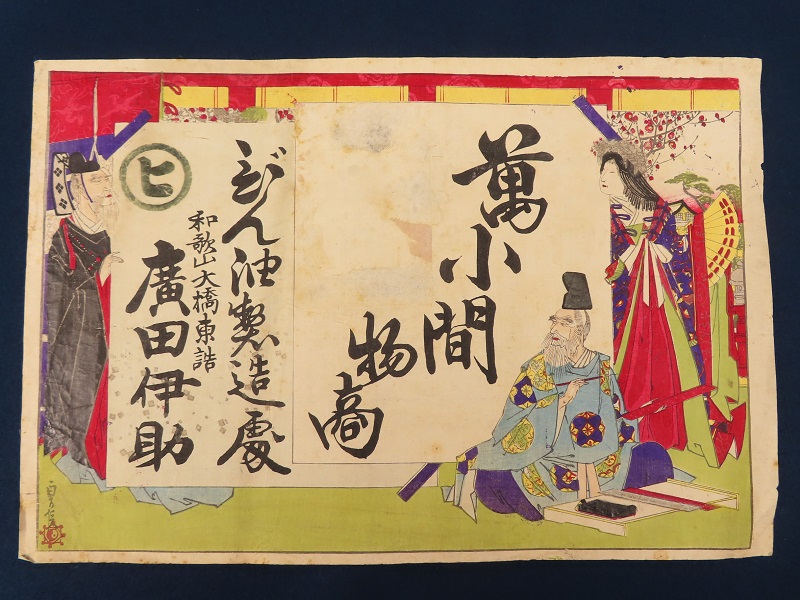 萬小間
物商
びん油製造處
和歌山大橋東詰
廣田伊助
ヒ